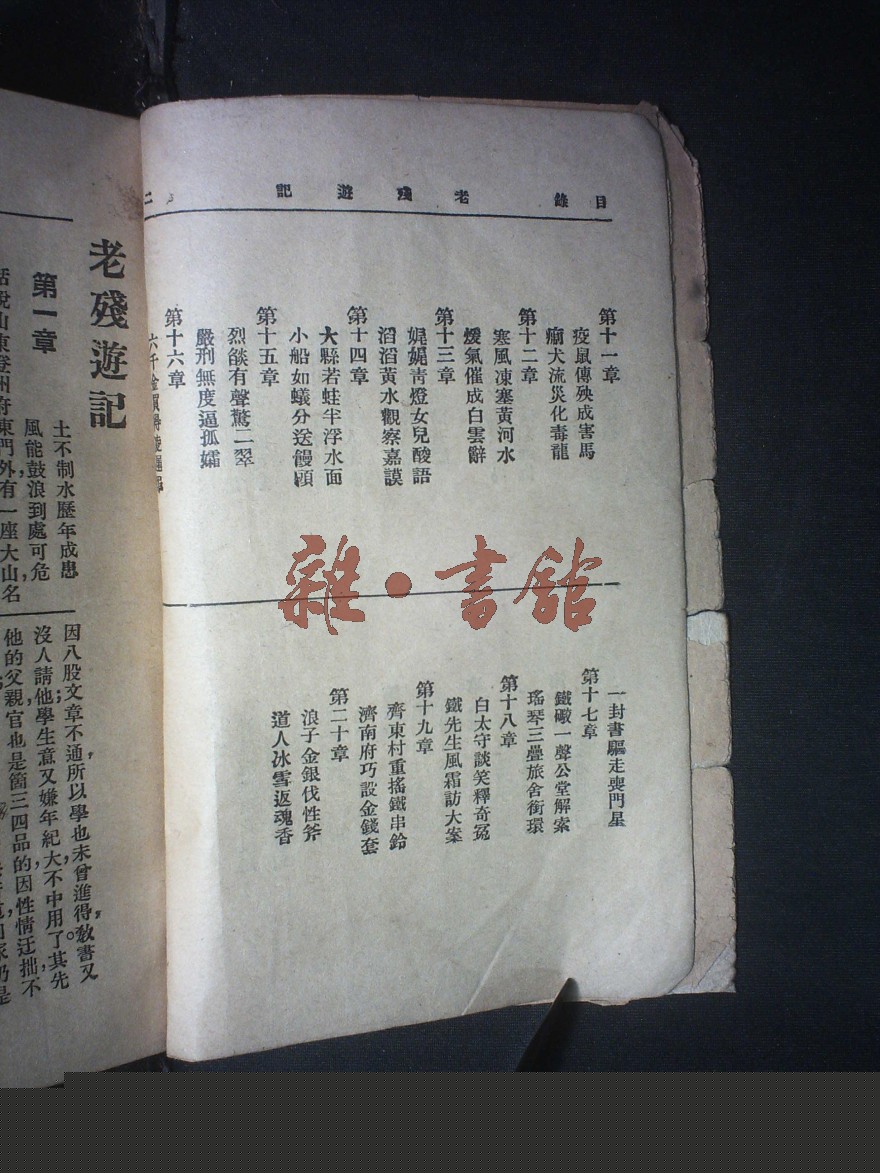 目錄 老殘遊記 二
第十一章
疫鼠傳殃成害馬
瘹犬流災化毒龍
第十二章
寒風凍塞黃河水
煖氣催成白雲辭
第十三章
娓娓靑燈女兒酸語
滔滔黃水觀察嘉謨
第十四章
大縣若蛙半浮水面
小船如蟻分送饅頭
第十五章
烈燄有聲驚二翠
嚴刑無度逼孤孀
第十六章
六千金買得
一封書驅走喪門星
第十七章
鐵礮一聲公堂解索
瑤琴三疊旅舍銜環
第十八章
白太守談笑釋奇冤
鐵先生風霜訪大案
第十九章
齊東村重搖鐵串鈴
濟南府巧設金錢套
第二十章
浪子金銀伐性斧
道人冰雪返魂香
雜·書館
老殘遊記
第一章
土不制水歷年成患
風能鼓浪到處可危
話說山東登州府東門外有一座大山名
因八股文章不通所以學也未曾進得,敎書又
沒人請他;學生意又嫌年紀大,不中用了。其先
他的父親官也是箇三四品的,因性情迂拙不